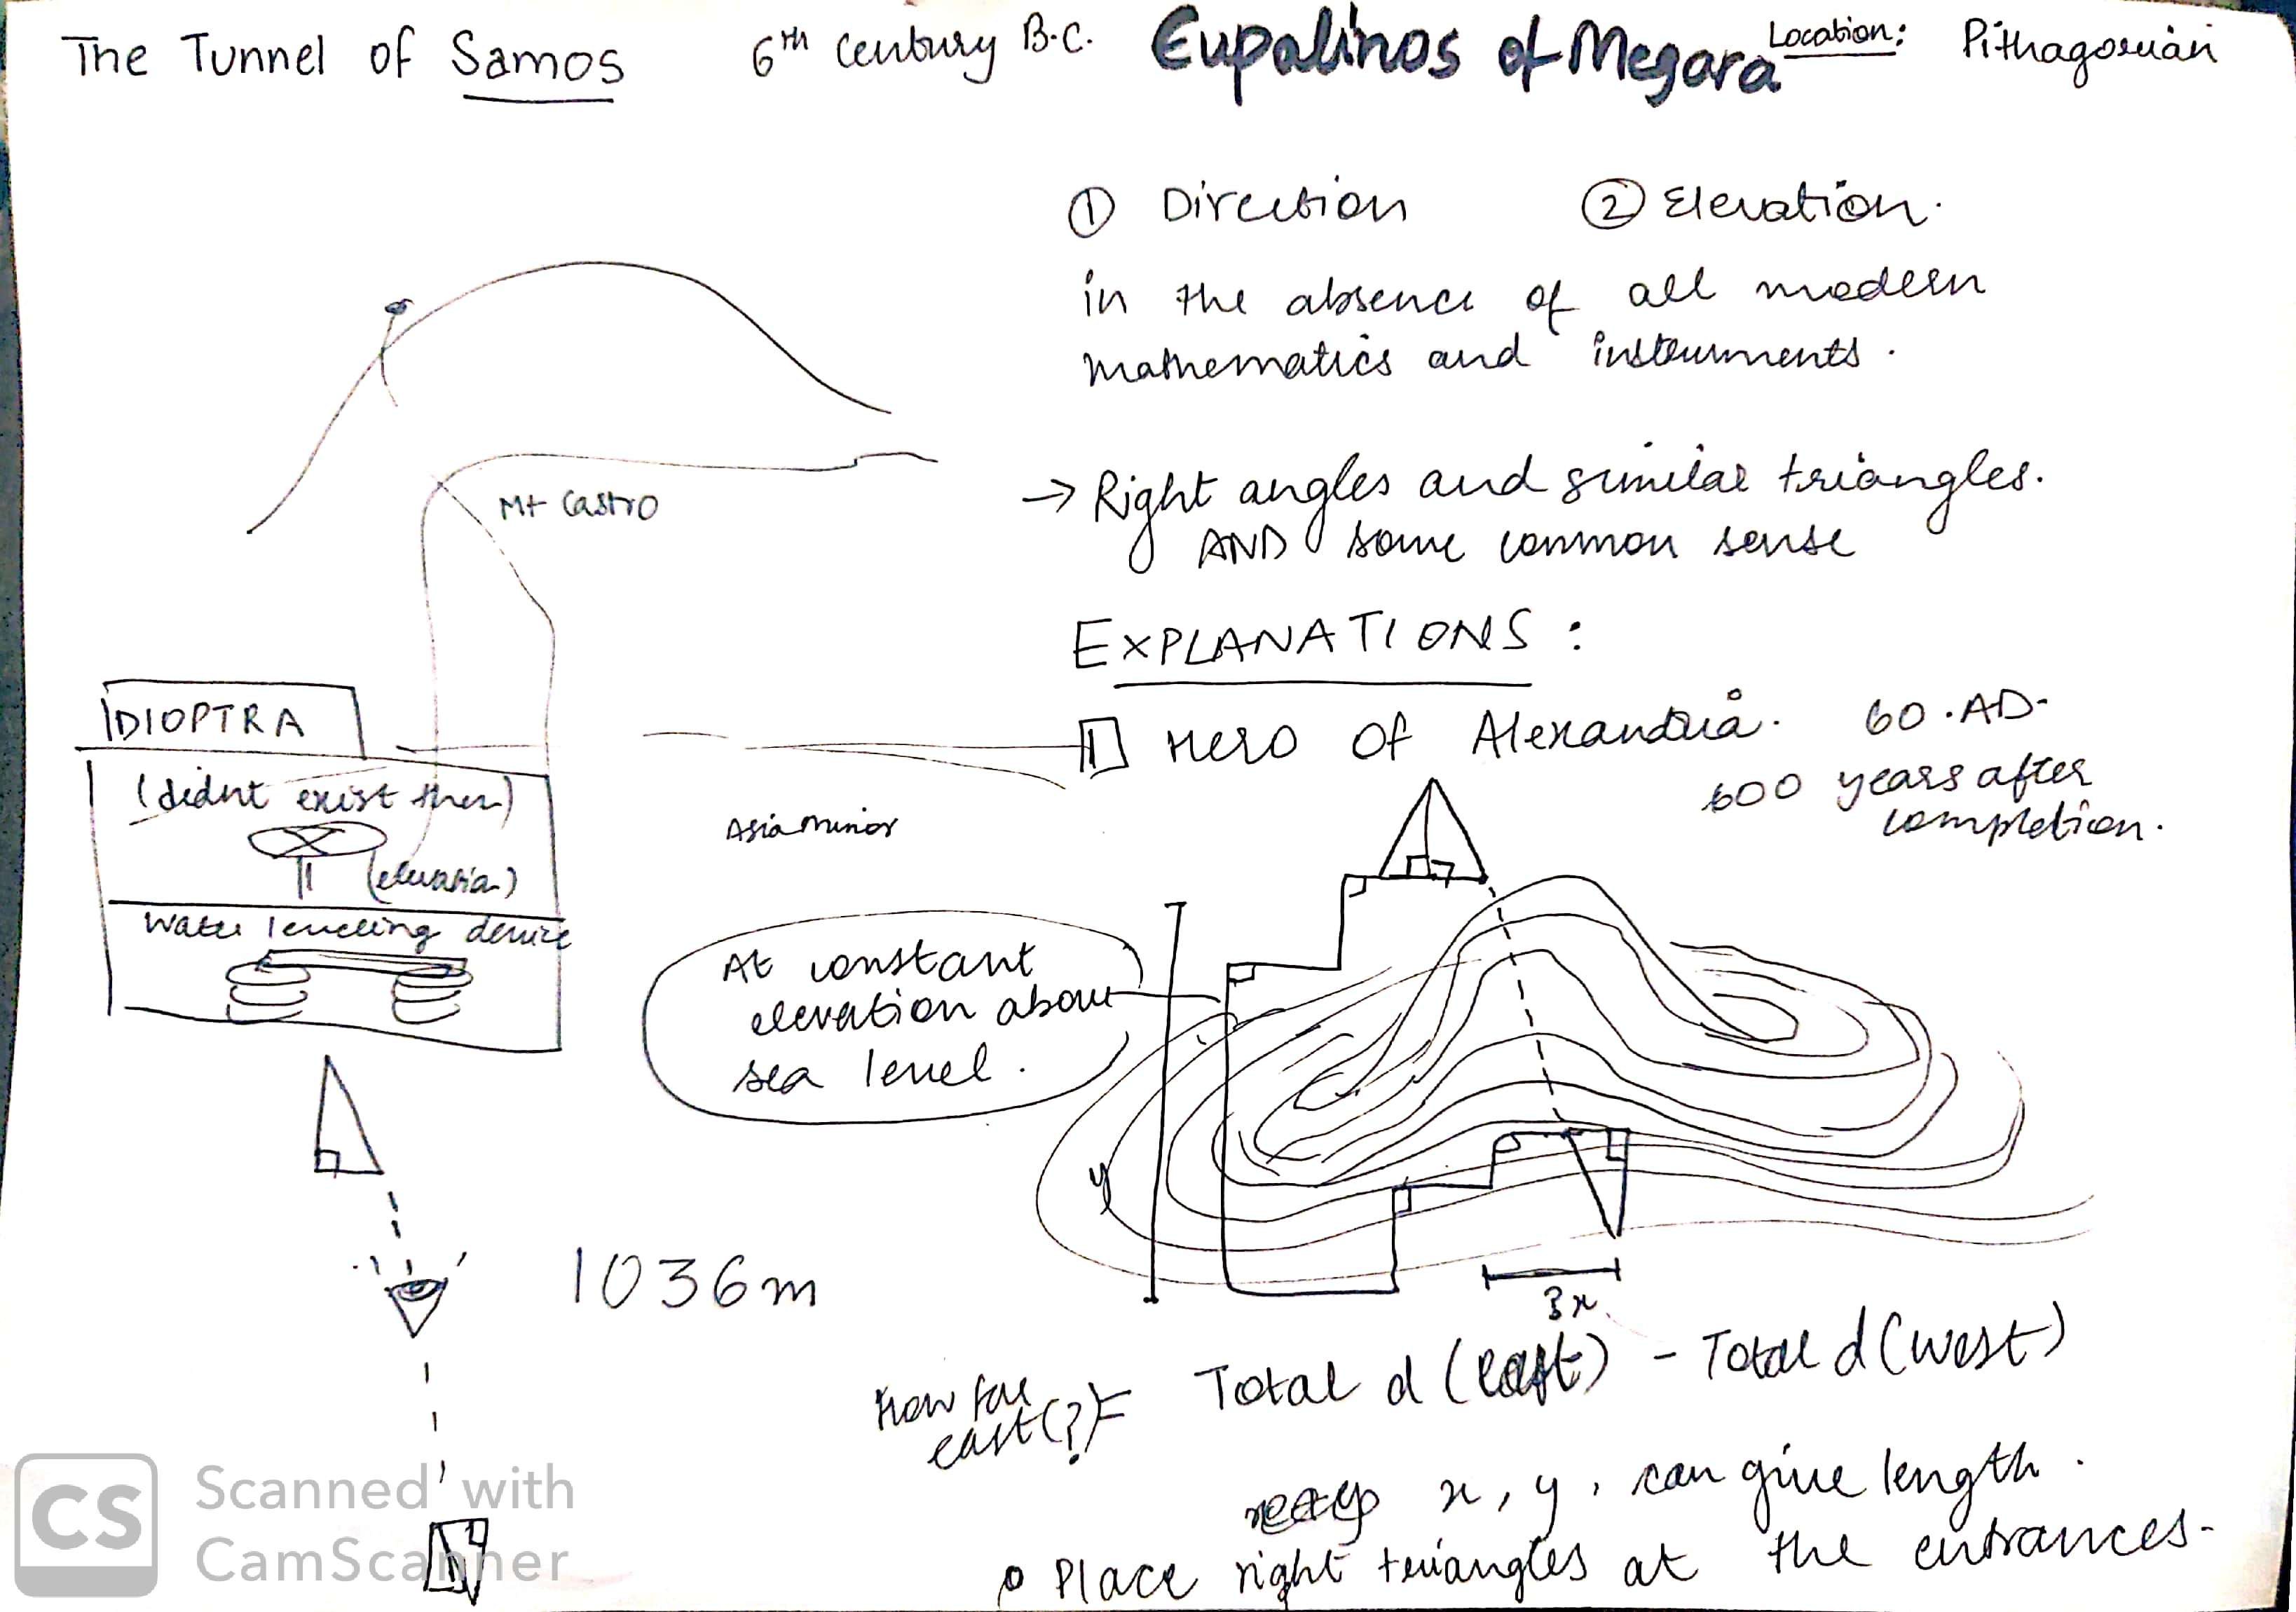 The Tunnel of Samos 6th Century B.C. Eupalinos of Megara Location: Pithagorian
① Direction ② Elevation.
in the absence of all modern
mathematics and instruments.
→ Right angles and similar triangles.
AND some common sense
Mt Castro
EXPLANATIONS:
1 Hero of Alexandria. 60.AD.
600 years after
completion.
DIOPTRA
(didnt exist then)
Water leveling device
Asia minor
At constant
elevation above
sea level.
y
3x
1036m
How far
east(?) = Total d (east) - Total d (west)
x, y, can give length.
Place right triangles at the entrances.
CS Scanned with
CamScanner